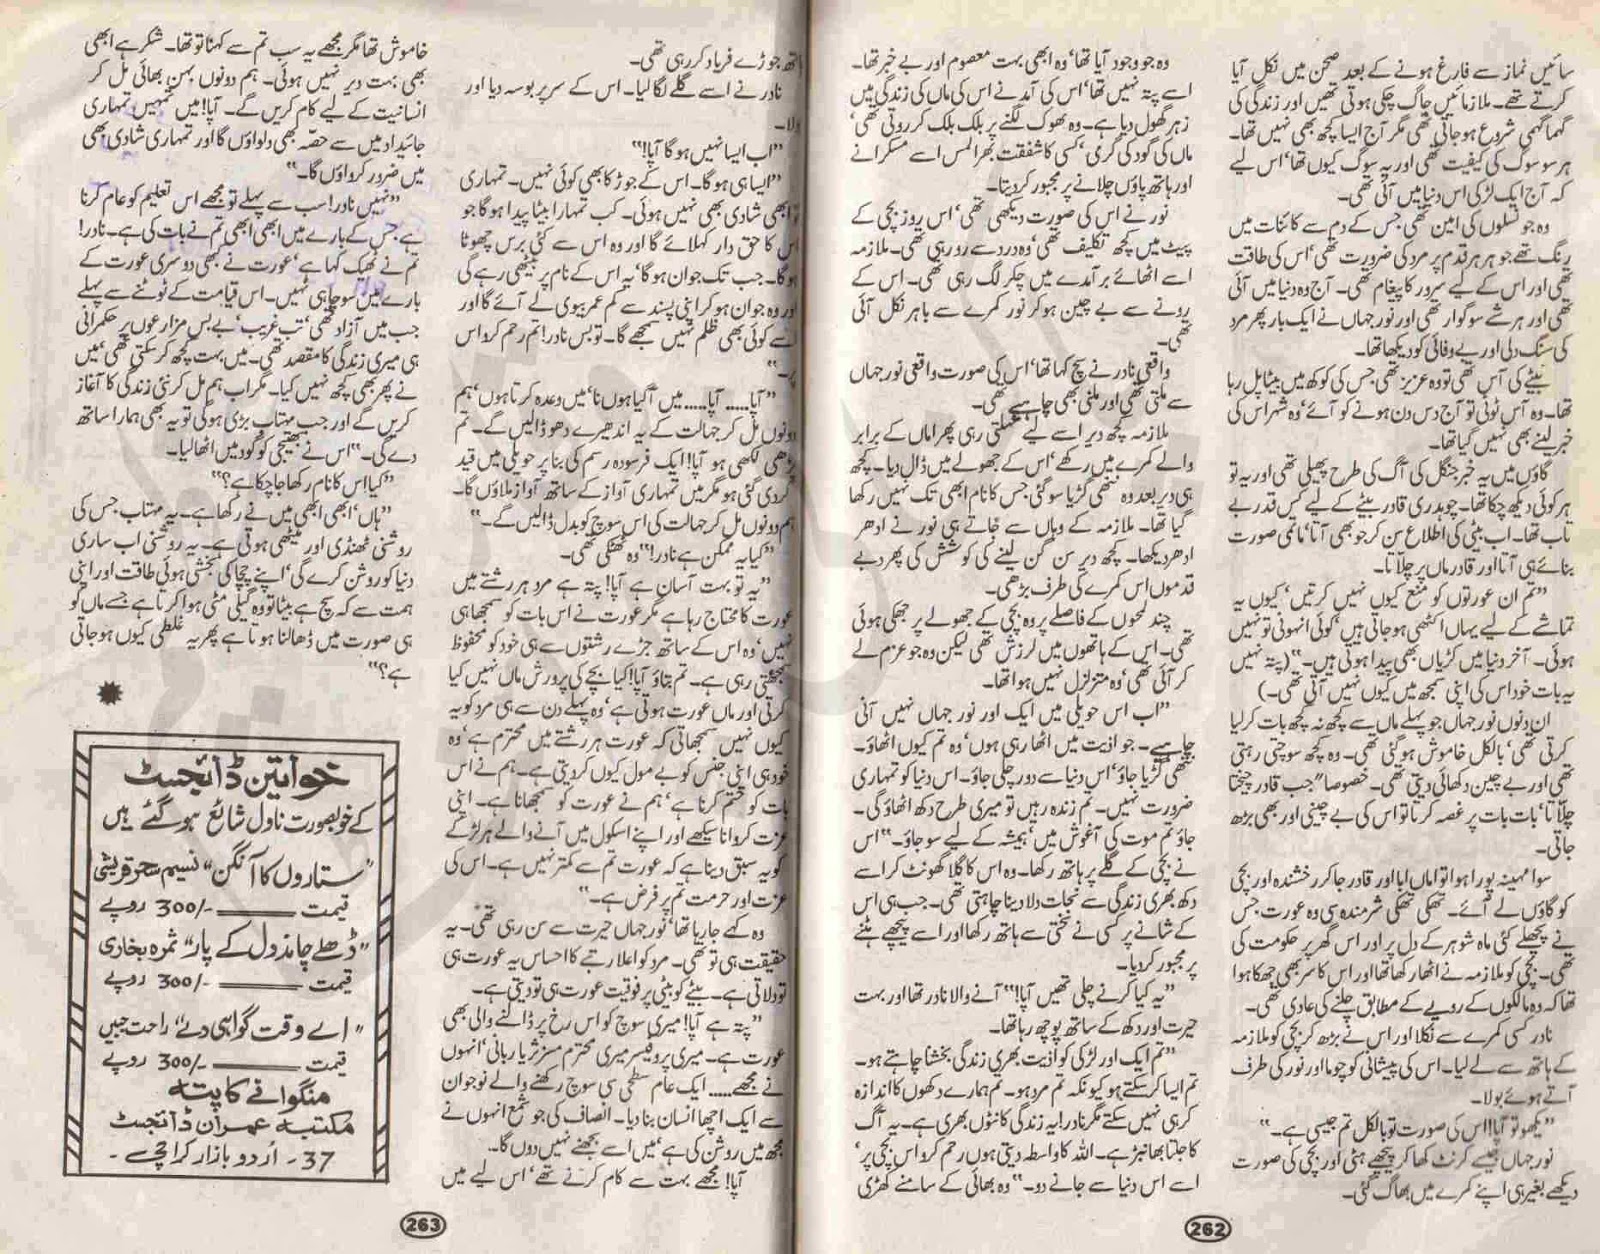 سائیں نماز سے فارغ ہونے کے بعد صحن میں نکل آیا
کرتے تھے۔ ملازمائیں جاگ چکی ہوتی تھیں اور زندگی کی
گہما گہمی شروع ہو جاتی تھی مگر آج ایسا کچھ بھی نہیں تھا۔
ہر سو سوگ کی کیفیت تھی اور یہ سوگ کیوں تھا، اس لیے
کہ آج ایک لڑکی اس دنیا میں آئی تھی۔
وہ جو نسلوں کی امین تھی جس کے دم سے کائنات میں
رنگ تھے جو ہر ہر قدم پر مرد کی ضرورت تھی، اس کی طاقت
تھی اور اس کے لیے سرور کا پیغام تھی۔ آج وہ دنیا میں آئی
تھی اور ہر شے سوگوار تھی اور نور جہاں نے ایک بار پھر مرد
کی سنگ دلی اور بے وفائی کو دیکھا تھا۔
بیٹے کی آس تھی تو وہ عزیز تھی جس کی کوکھ میں بیٹا پل رہا
تھا۔ وہ آس ٹوٹی تو آج دس دن ہونے کو آئے، وہ شہر اس کی
خبر لینے بھی نہیں گیا تھا۔
گاؤں میں یہ خبر جنگل کی آگ کی طرح پھیلی تھی اور یہ تو
ہر کوئی دیکھ چکا تھا۔ چوہدری قادر بیٹے کے لیے کس قدر بے
تاب تھا۔ اب بیٹی کی اطلاع سن کر جو بھی آتا، ماتمی صورت
بنائے ہی آتا اور قادر ماں پر چلاتا۔
"تم ان عورتوں کو منع کیوں نہیں کرتیں، کیوں یہ
تماشے کے لیے یہاں اکٹھی ہو جاتی ہیں، کوئی انہونی تو نہیں
ہوئی۔ آخر دنیا میں کڑیاں بھی پیدا ہوتی ہیں۔" (پتہ نہیں
یہ بات خود اس کی اپنی سمجھ میں کیوں نہیں آتی تھی۔)
ان دنوں نور جہاں جو پہلے ماں سے کچھ نہ کچھ بات کر لیا
کرتی تھی، بالکل خاموش ہو گئی تھی۔ وہ کچھ سوچتی رہتی
تھی اور بے چین دکھائی دیتی تھی۔ خصوصاً جب قادر چیختا
چلاتا، بات بات پر غصہ کرتا تو اس کی بے چینی اور بھی بڑھ
جاتی۔
سوا مہینہ پورا ہوا تو اماں لیا اور قادر جا کر رخشندہ اور بچی
کو گاؤں لے آئے۔ تھکی تھکی شرمندہ سی وہ عورت جس
نے پچھلے کئی ماہ شوہر کے دل پر اور اس گھر پر حکومت کی
تھی۔ بچی کو ملازمہ نے اٹھا رکھا تھا اور اس کا سر بھی جھکا ہوا
تھا کہ وہ مالکوں کے رویے کے مطابق چلنے کی عادی تھی۔
نادر کسی کمرے سے نکلا اور اس نے بڑھ کر بچی کو ملازمہ
کے ہاتھ سے لے لیا۔ اس کی پیشانی کو چوما اور نور کی طرف
آتے ہوئے بولا۔
"دیکھو تو آپا! اس کی صورت تو بالکل تم جیسی ہے۔"
نور جہاں جیسے کرنٹ کھا کر پیچھے ہٹی اور بچی کی صورت
دیکھے بغیر ہی اپنے کمرے میں بھاگ گئی۔
وہ جو وجود آیا تھا، وہ ابھی بہت معصوم اور بے خبر تھا۔
اسے پتہ نہیں تھا، اس کی آمد نے اس کی ماں کی زندگی میں
زہر گھول دیا ہے۔ وہ بھوک لگنے پر بلک بلک کر روتی تھی،
ماں کی گود کی گرمی، کسی کا شفقت بھرا لمس اسے مسکرانے
اور ہاتھ پاؤں چلانے پر مجبور کر دیتا۔
نور نے اس کی صورت دیکھی تھی، اس روز بچی کے
پیٹ میں کچھ تکلیف تھی، وہ درد سے رو رہی تھی۔ ملازمہ
اسے اٹھائے برآمدے میں چکر لگا رہی تھی۔ اس کے
رونے سے بے چین ہو کر نور کمرے سے باہر نکل آئی
تھی۔
واقعی نادر نے سچ کہا تھا، اس کی صورت واقعی نور جہاں
سے ملتی تھی اور ملنی بھی چاہیے تھی۔
ملازمہ کچھ دیر اسے لیے ٹہلتی رہی پھر اماں کے برابر
والے کمرے میں رکھے، اس کے جھولے میں ڈال دیا۔ کچھ
ہی دیر بعد وہ ننھی گڑیا سو گئی جس کا نام ابھی تک نہیں رکھا
گیا تھا۔ ملازمہ کے وہاں سے جاتے ہی نور نے ادھر
ادھر دیکھا۔ کچھ دیر سن گن لینے کی کوشش کی پھر دبے
قدموں اس کمرے کی طرف بڑھی۔
چند لمحوں کے فاصلے پر وہ بچی کے جھولے پر جھکی ہوئی
تھی۔ اس کے ہاتھوں میں لرزش تھی لیکن وہ جو عزم لے
کر آئی تھی، وہ متزلزل نہیں ہوا تھا۔
"اب اس حویلی میں ایک اور نور جہاں نہیں آنی
چاہیے۔ جو اذیت میں اٹھا رہی ہوں، وہ تم کیوں اٹھاؤ۔
ننھی گڑیا جاؤ، اس دنیا سے دور چلی جاؤ۔ اس دنیا کو تمہاری
ضرورت نہیں۔ تم زندہ رہیں تو میری طرح دکھ اٹھاؤ گی۔
جاؤ تم موت کی آغوش میں، ہمیشہ کے لیے سو جاؤ۔" اس
نے بچی کے گلے پر ہاتھ رکھا۔ وہ اس کا گلا گھونٹ کر اسے
دکھ بھری زندگی سے نجات دلا دینا چاہتی تھی۔ جب ہی اس
کے شانے پر کسی نے سختی سے ہاتھ رکھا اور اسے پیچھے ہٹنے
پر مجبور کر دیا۔
"یہ کیا کرنے چلی تھیں آپا!" آنے والا نادر تھا اور بہت
حیرت اور دکھ کے ساتھ پوچھ رہا تھا۔
"تم ایک اور لڑکی کو اذیت بھری زندگی بخشنا چاہتے ہو۔
تم ایسا کر سکتے ہو کیونکہ تم مرد ہو۔ تم ہمارے دکھوں کا اندازہ
کر ہی نہیں سکتے مگر نادر! یہ زندگی کانٹوں بھری ہے۔ یہ آگ
کا جلتا بھانبڑ ہے۔ اللہ کا واسطہ دیتی ہوں رحم کرو اس بچی پر،
اسے اس دنیا سے جانے دو۔" وہ بھائی کے سامنے کھڑی
262
ہاتھ جوڑے فریاد کر رہی تھی۔
نادر نے اسے گلے لگا لیا۔ اس کے سر پر بوسہ دیا اور
بولا۔
"اب ایسا نہیں ہو گا آپا!"
"ایسا ہی ہو گا۔ اس کے جوڑ کا بھی کوئی نہیں۔ تمہاری
تو ابھی شادی بھی نہیں ہوئی۔ کب تمہارا بیٹا پیدا ہو گا جو
اس کا حق دار کہلائے گا اور وہ اس سے کئی برس چھوٹا
ہو گا۔ جب تک جوان ہو گا، یہ اس کے نام پر بیٹھی رہے گی
اور وہ جوان ہو کر اپنی پسند سے کم عمر بیوی لے آئے گا اور
اسے کوئی بھی ظلم نہیں سمجھے گا۔ تو بس نادر! تم رحم کرو اس
پر۔"
"آپا..... آپا..... میں آ گیا ہوں نا، میں وعدہ کرتا ہوں، ہم
دونوں مل کر جہالت کے یہ اندھیرے دھو ڈالیں گے۔ تم
پڑھی لکھی ہو آپا! ایک فرسودہ رسم کی بنا پر حویلی میں قید
کر دی گئی ہو مگر میں تمہاری آواز کے ساتھ آواز ملاؤں گا۔
ہم دونوں مل کر جہالت کی اس سوچ کو بدل ڈالیں گے۔"
"کیا یہ ممکن ہے نادر!" وہ ٹھٹکی تھی۔
"یہ تو بہت آسان ہے آپا! پتہ ہے مرد ہر رشتے میں
عورت کا محتاج رہا ہے مگر عورت نے اس بات کو سمجھا ہی
نہیں، وہ اس کے ساتھ جڑے رشتوں سے ہی خود کو محفوظ
سمجھتی رہی ہے۔ تم بتاؤ آپا! کیا بچے کی پرورش ماں نہیں کیا
کرتی اور ماں عورت ہوتی ہے، وہ پہلے دن سے ہی مرد کو یہ
کیوں نہیں سمجھاتی کہ عورت ہر رشتے میں محترم ہے، وہ
خود ہی اپنی جنس کو بے مول کیوں کر دیتی ہے۔ ہم نے اس
بات کو ختم کرنا ہے، ہم نے عورت کو سمجھانا ہے۔ اپنی
عزت کروانا سیکھے اور اپنے اسکول میں آنے والے ہر لڑکے
کو یہ سبق دینا ہے کہ عورت تم سے کمتر نہیں ہے۔ اس کی
عزت اور حرمت تم پر فرض ہے۔"
وہ کہے جا رہا تھا، نور جہاں حیرت سے سن رہی تھی۔ یہ
حقیقت ہی تو تھی۔ مرد کو اعلا رتبے کا احساس یہ عورت ہی
تو دلاتی ہے۔ بیٹے کو بیٹی پر فوقیت عورت ہی تو دیتی ہے۔
"پتہ ہے آپا! میری سوچ کو اس رخ پر ڈالنے والی بھی
عورت ہے۔ میری پروفیسر میری محترم مسز ثریا ربانی، انہوں
نے مجھے..... ایک عام سطحی سی سوچ رکھنے والے نوجوان
سے ایک اچھا انسان بنا دیا۔ انصاف کی جو شمع انہوں نے
مجھ میں روشن کی ہے، میں اسے بجھنے نہیں دوں گا۔
آپا! مجھے بہت سے کام کرنے تھے، اس لیے میں
خاموش تھا مگر مجھے یہ سب تم سے کہنا تو تھا۔ شکر ہے ابھی
بھی بہت دیر نہیں ہوئی۔ ہم دونوں بہن بھائی مل کر
انسانیت کے لیے کام کریں گے۔ آپا! میں تمہیں تمہاری
جائیداد میں سے حصہ بھی دلواؤں گا اور تمہاری شادی بھی
میں ضرور کرواؤں گا۔"
"نہیں نادر! سب سے پہلے تو مجھے اس تعلیم کو عام کرنا
ہے جس کے بارے میں ابھی ابھی تم نے بات کی ہے۔ نادر!
تم نے ٹھیک کہا ہے، عورت نے کبھی دوسری عورت کے
بارے میں سوچا ہی نہیں۔ اس قیامت کے ٹوٹنے سے پہلے
جب میں آزاد تھی، تب غریب، بے بس مزارعوں پر حکمرانی
ہی میری زندگی کا مقصد تھی۔ میں بہت کچھ کر سکتی تھی، میں
نے پھر بھی کچھ نہیں کیا۔ مگر اب ہم مل کر نئی زندگی کا آغاز
کریں گے اور جب مہتاب بڑی ہو گی تو یہ بھی ہمارا ساتھ
دے گی۔" اس نے بھتیجی کو گود میں اٹھا لیا۔
"کیا اس کا نام رکھا جا چکا ہے؟"
"ہاں، ابھی ابھی میں نے رکھا ہے۔ یہ مہتاب جس کی
روشنی ٹھنڈی اور میٹھی ہوتی ہے۔ یہ روشنی اب ساری
دنیا کو روشن کرے گی، اپنے چچا کی بخشی ہوئی طاقت اور اپنی
ہمت سے کہ سچ ہے بیٹا تو وہ گیلی مٹی ہوا کرتا ہے جسے ماں کو
ہی صورت میں ڈھالنا ہوتا ہے پھر یہ غلطی کیوں ہو جاتی
ہے؟"
خواتین ڈائجسٹ
کے خوبصورت ناول شائع ہو گئے ہیں
"ستاروں کا آنگن" نسیم سحر قریشی
قیمت ——— 300/- روپے
"ڈھلے چاند دل کے پار" ثمرہ بخاری
قیمت ——— 300/- روپے
"اے وقت گواہی دے" راحت جبیں
قیمت ——— 300/- روپے
منگوانے کا پتہ
مکتبہ عمران ڈائجسٹ
37۔ اُردو بازار کراچی۔
263